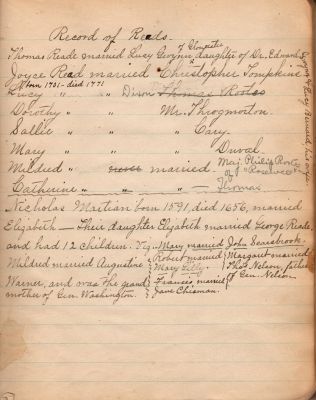 Record of Reads.
of Gloucester
Thomas Reade married Lucy Gwynn daughter of Dr. Edward
Joyce Read married Christopher Tompkins
born 1701-died 1771
Lucy " " Dixon Thomas Rootes
Dorothy " " Mr. Throgmorton.
Sallie " " Cary.
Mary " " Duval.
Mildred " never married. Maj. Philip Rootes
of "Rosewell"
Catherine " " " — Thomas.
Nicholas Martian born 1591, died 1656, married
Elizabeth — Their daughter Elizabeth married George Reade,
and had 12 children. Viz. Mary married John Seasbrook.
Mildred married Augustine
Warner, and was the grand
mother of Gen. Washington.
Robert married
Mary Lilly.
Francis married
Jane Chisman.
Margaret married
Thos Nelson, father
of Gen. Nelson